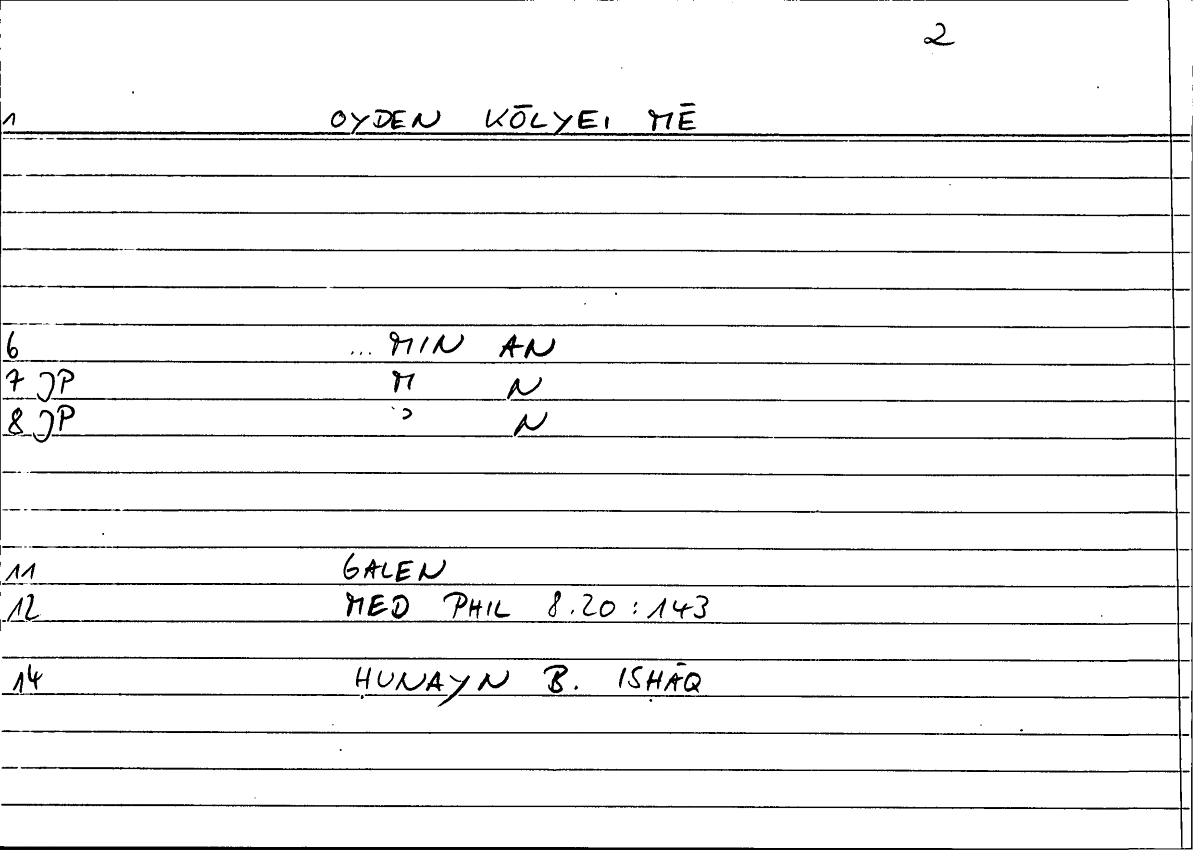 2
1 OYDEN KŌLYEI MĒ
6 ... MIN AN
7 JP M N
8 JP N
11 GALEN
12 MED PHIL 8.20:143
14 ḤUNAYN B. ISḤĀQ